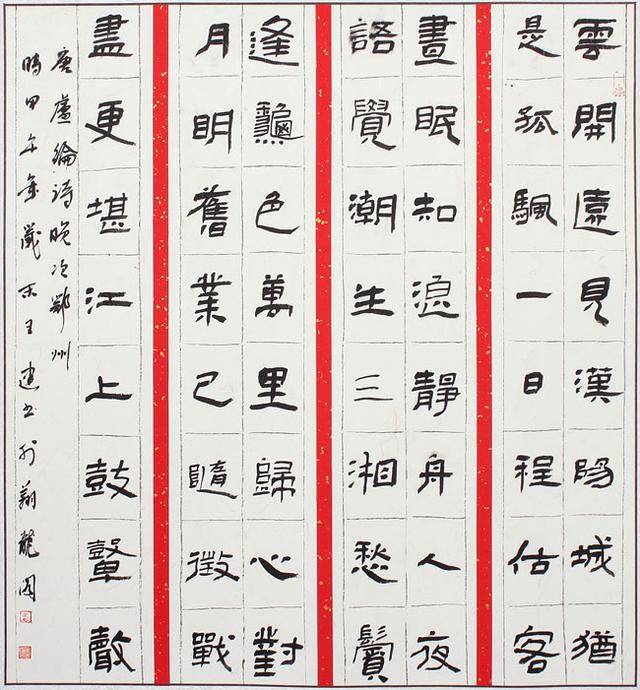 雲開遠見漢陽城猶
是孤颿一日程估客
晝眠知浪靜舟人夜
語覺潮生三湘愁鬢
逢龝色萬里歸心對
月明舊業已隨徵戰
盡更堪江上鼓鼙聲
唐盧綸詩晚次鄂州
時甲午年歲末王建书於翔龍閣